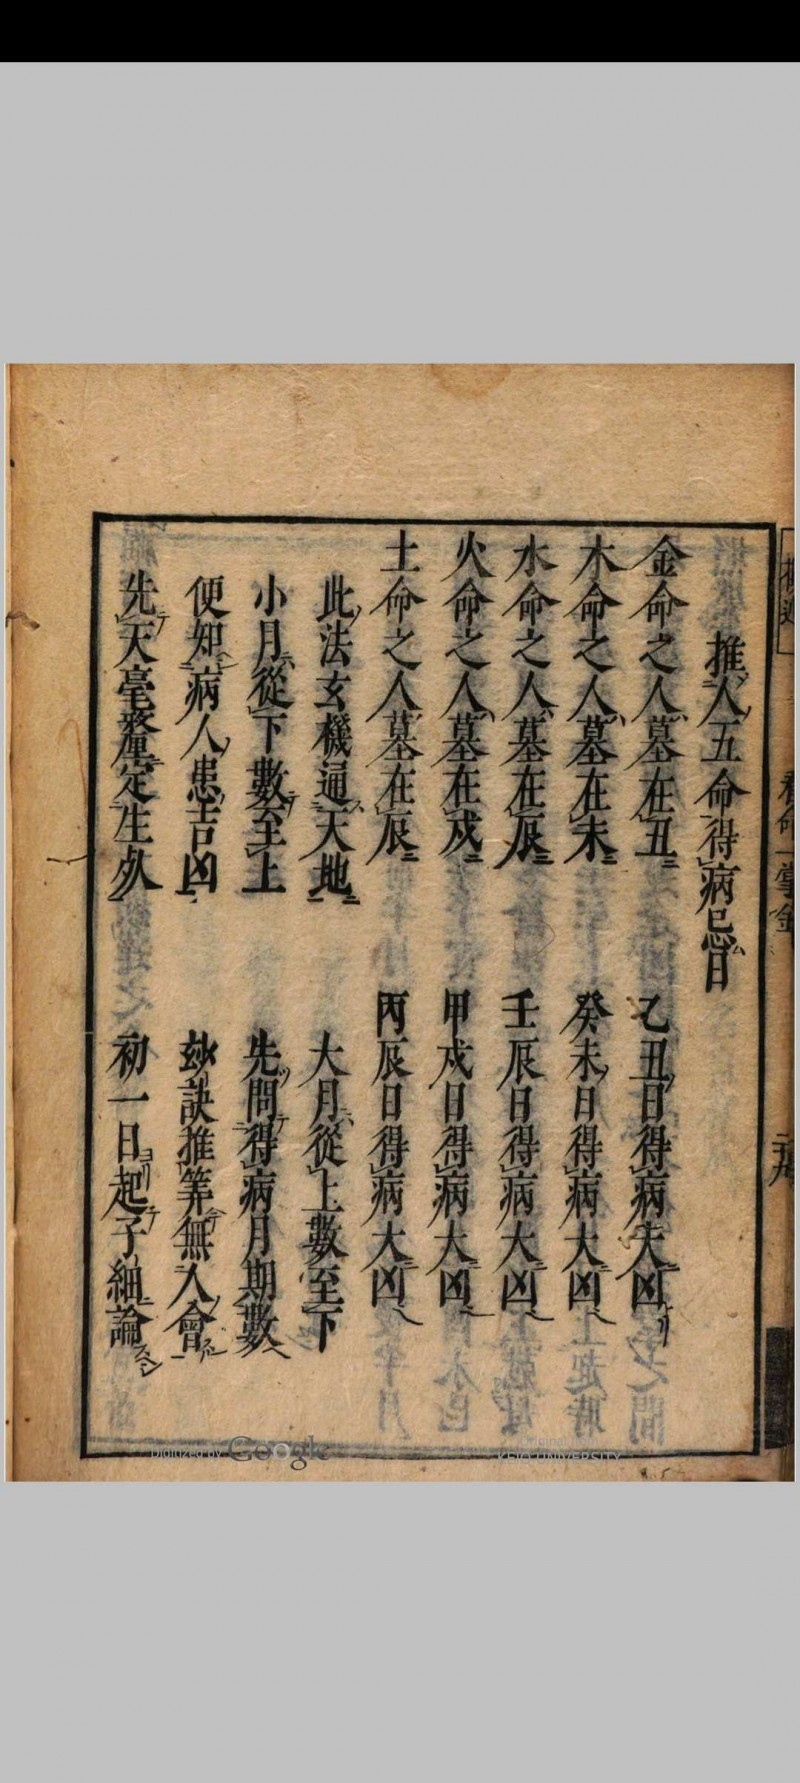 推人五命得病忌日
金命之人墓在丑 乙丑日得病大凶
木命之人墓在未 癸未日得病大凶
水命之人墓在辰 壬辰日得病大凶
火命之人墓在戌 甲戌日得病大凶
土命之人墓在辰 丙辰日得病大凶
此法玄機通天地 大月從上數至下
小月從下數至上 先問得病月期數
便知病人患吉凶 玅訣推筭無人會
先天毫釐定生死 初一日起子細論
Digitized by Google
KEIO UNIVERSITY